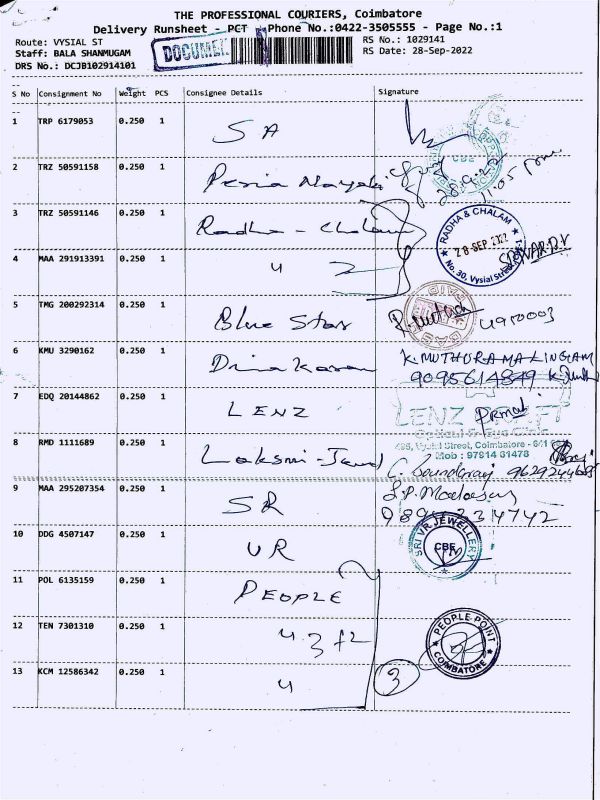 THE PROFESSIONAL COURIERS, Coimbatore
Delivery Runsheet - PCT - Phone No.:0422-3505555 - Page No.:1
Route: VYSIAL ST
RS No.: 1029141
Staff: BALA SHANMUGAM
RS Date: 28-Sep-2022
DRS No.: DCJB102914101
S No Consignment No Weight PCS Consignee Details Signature
1 TRP 6179053 0.250 1 SA
CBE
2 TRZ 50591158 0.250 1
28.9.22
11.05
3 TRZ 50591146 0.250 1 Radha - Chalam
RADHA & CHALAM
28 SEP 2022
No. 30, Vysial Street
4 MAA 291913391 0.250 1 4 2
5 TMG 200292314 0.250 1 Blue Star
6 KMU 3290162 0.250 1 Dinakaran K.MUTHURAMALINGAM
9095614849
7 EDQ 20144862 0.250 1 LENZ
LENZ CRAFT
Vysial Street, Coimbatore
Mob : 97814 61478
8 RMD 1111689 0.250 1 Laksmi - Jewel
C. Soundaraj
9 MAA 295207354 0.250 1 SR
10 DDG 4507147 0.250 1 VR
SRI VR JEWELLERY
CBE
11 POL 6135159 0.250 1 PEOPLE
12 TEN 7301310 0.250 1 4 3
PEOPLE POINT
COIMBATORE
13 KCM 12586342 0.250 1 4 3